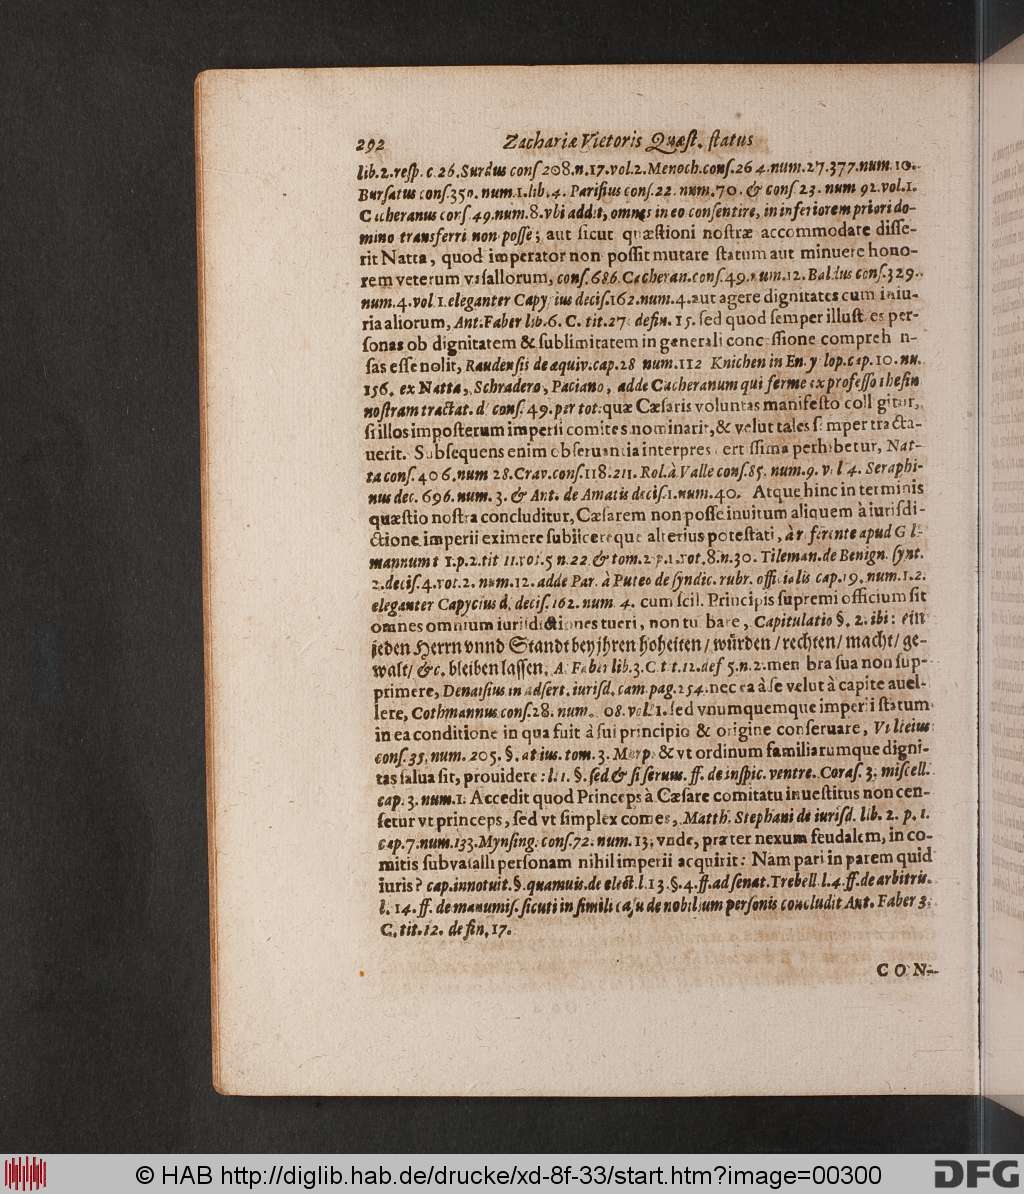 292 Zachariæ Victoris Quæst. status
lib. 2. resp. c. 26. Surdus cons 208. n. 17. vol. 2. Menoch. cons. 264. num. 27. 377. num. 10.
Bursatus cons. 350. num. 1. lib. 4. Parisius cons. 22. num. 70. & cons 23. num 92. vol. 1.
Cacheranus cons. 49. num. 8. vbi addit, omnes in eo consentire, in inferiorem priori do-
mino transferri non posse; aut sicut quæstioni nostræ accommodate disse-
rit Natta, quod imperator non possit mutare statum aut minuere hono-
rem veterum vasallorum, cons. 686. Cacheran. cons. 49. num. 12. Baldus cons. 329.
num. 4. vol 1. eleganter Capycius decis. 162. num. 4. aut agere dignitates cum iniu-
ria aliorum, Ant. Faber lib. 6. C. tit. 27. defin. 15. sed quod semper illustres per-
sonas ob dignitatem & sublimitatem in generali concessione comprehen-
sas esse nolit, Raudensis de æquiv. cap. 28 num. 112 Knichen in Encyclop. cap. 10. nu.
156. ex Natta, Schradero, Paciano, adde Cacheranum qui ferme ex professo thesin
nostram tractat. d. cons. 49. per tot. quæ Cæsaris voluntas manifesto colligitur,
si illos imposterum imperii comites nominarit, & velut tales semper tracta-
uerit. Subsequens enim obseruantia interpres certissima perhibetur, Nat-
ta cons. 406. num 28. Crav. cons. 118. 211. Rol. à Valle cons. 85. num. 9. v. l 4. Seraphi-
nus dec. 696. num. 3. & Ant. de Amatis decis. 1. num. 40. Atque hinc in terminis
quæstio nostra concluditur, Cæsarem non posse inuitum aliquem à iurisdi-
ctione imperii eximere subiicereque alterius potestati, à referente apud Gil-
mannum t 1. p. 2. tit 11. vot. 5 n. 22. & tom. 2. p. 1. vot. 8. n. 30. Tileman. de Benign. synt.
2. decis. 4. vot. 2. num. 12. adde Par. à Puteo de syndic. rubr. officialis cap. 19. num. 1. 2.
eleganter Capycius d. decis. 162. num. 4. cum scil. Principis supremi officium sit
omnes omnium iurisdictiones tueri, non turbare, Capitulatio §. 2. ibi: ein
jeden Herrn vnnd Standt bey jhren hoheiten / würden / rechten / macht / ge-
walt / &c. bleiben lassen, A. Faber lib. 3. C. tit. 12. def 5. n. 2. membra sua non sup-
primere, Denaisius in adsert. iurisd. cam. pag. 254. nec ea à se velut à capite auel-
lere, Cothmannus cons. 28. num. 08. vol. 1. sed vnumquemque imperii statum
in ea conditione in qua fuit à sui principio & origine conseruare, Vulteius
cons. 35. num. 205. §. at ius. tom. 3. Marp. & vt ordinum familiarumque digni-
tas salua sit, prouidere: l. 1. §. sed & si seruus. ff. de inspic. ventre. Coras. 3. miscell.
cap. 3. num. 1. Accedit quod Princeps à Cæsare comitatu inuestitus non cen-
setur vt princeps, sed vt simplex comes, Matth. Stephani de iurisd. lib. 2. p. 1.
cap. 7. num. 133. Mynsing. cons. 72. num. 13; vnde, præter nexum feudalem, in co-
mitis subvasalli personam nihil imperii acquirit: Nam pari in parem quid
iuris? cap. innotuit. §. quamuis. de elect. l. 13. §. 4. ff. ad senat. Trebell. l. 4. ff. de arbitris.
l. 14. ff. de manumis. sicuti in simili casu de nobilium personis concludit Ant. Faber 3.
C. tit. 12. defin. 17.
CON-
© HAB http://diglib.hab.de/drucke/xd-8f-33/start.htm?image=00300
DFG